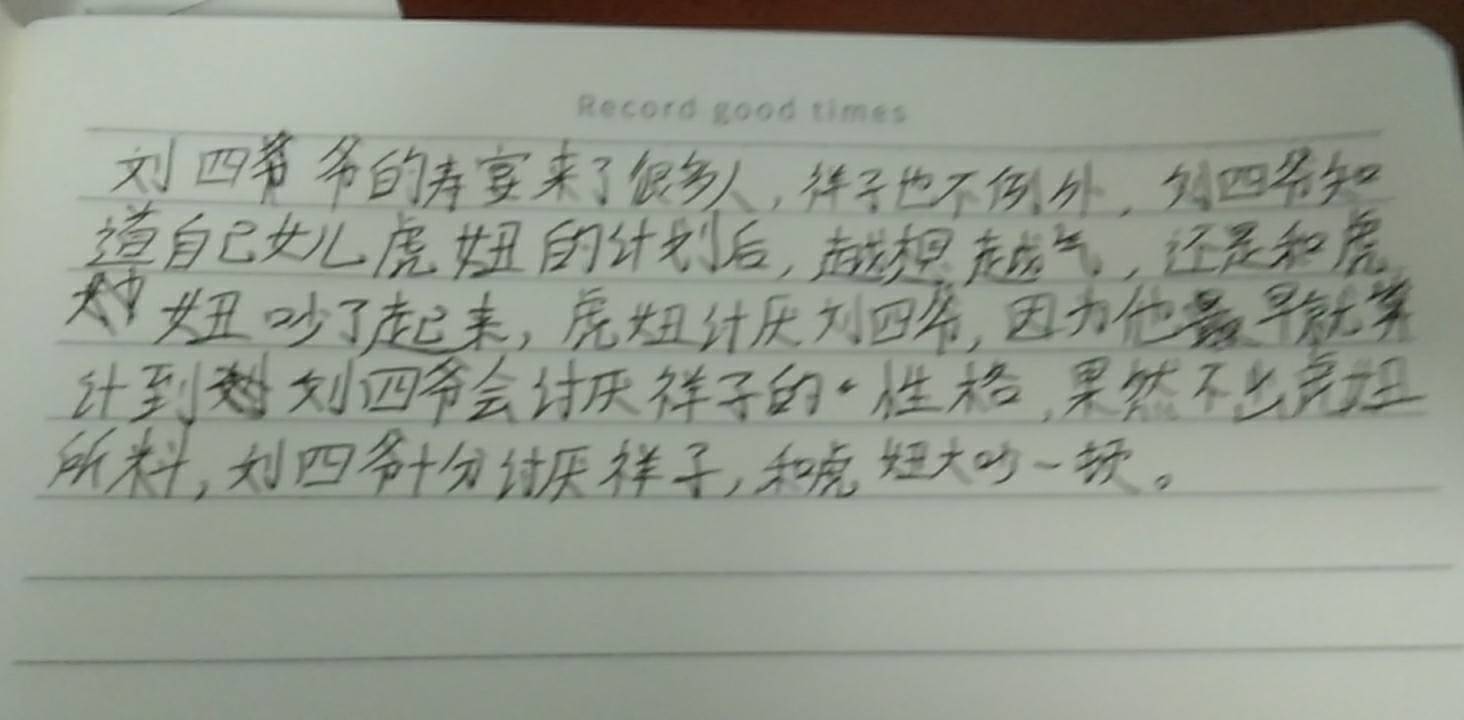 Record good times
刘四爷爷的寿宴来了很多人，祥子也不例外，刘四爷知
道自己女儿虎妞的计划后，越想越气，还是和虎
妞吵了起来，虎妞讨厌刘四爷，因为他最早就算
计到刘四爷会讨厌祥子的性格，果然不出虎妞
所料，刘四爷十分讨厌祥子，和虎妞大吵一顿。